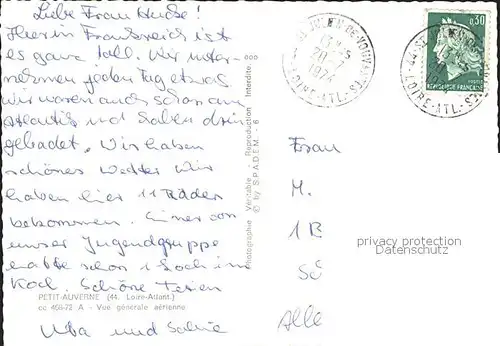 Liebe Frau
Hier in Frankreich ist
es ganz toll. Wir unter-
nehmen jeden Tag etwas
wir waren auch schon am
Atlantik und haben drin
gebadet. Wir haben
schönes Wetter. Wir
haben hier 11 Räder
bekommen. Einer von
unser Jugendgruppe
hatte schon 1 Loch im
Kopf. Schöne Ferien
PETIT-AUVERNE (44. Loire-Atlant.)
cc 459-72 A - Vue générale aérienne
und
Photographie Véritable - Reproduction Interdite
© by S.P.A.D.E.M. - 6
44-ST JULIEN-DE-VOUVANTES
20-7
1974
LOIRE-ATL.
0,30
REPUBLIQUE FRANÇAISE
LOIRE-ATL.
Frau
M.
1 B
privacy protection
Datenschutz
Alle